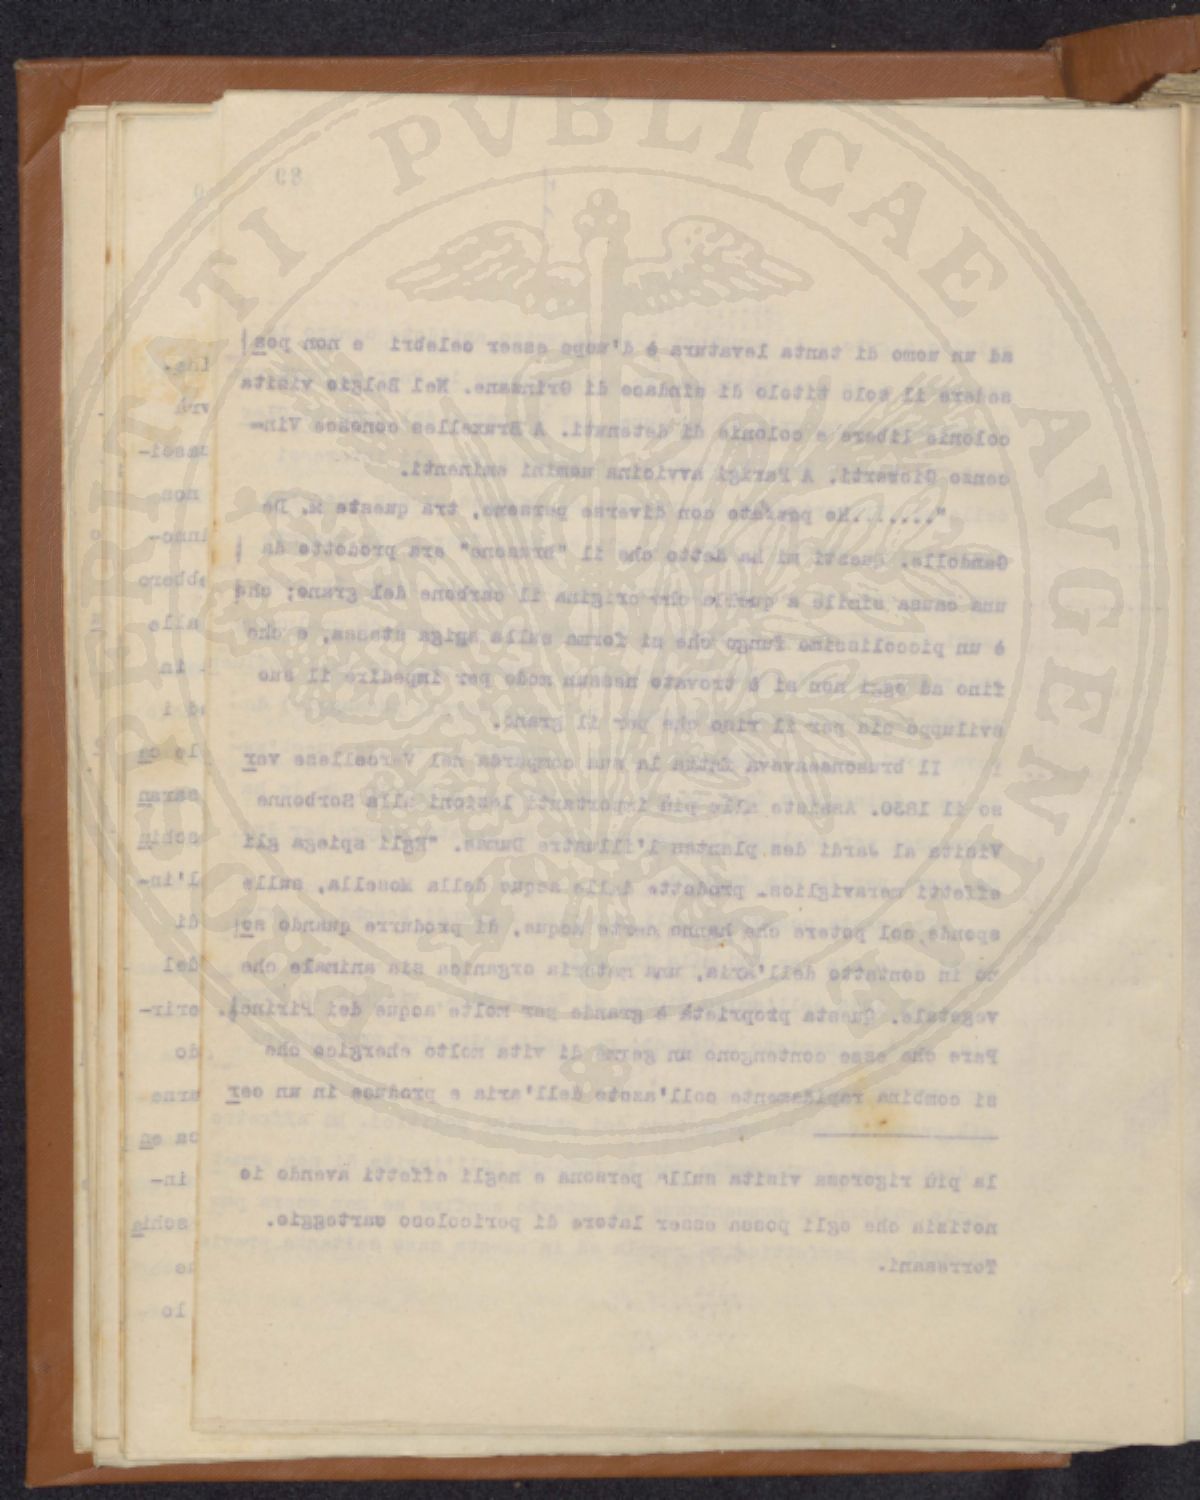 PROSPERITATI PVBLICAE AVGENDAE
89
ad un uomo di tanta levatura è d'uopo esser celebri e non pos
sedere il solo titolo di sindaco di Grinzane. Nel Belgio visita
colonie libere e colonie di detenuti. A Bruxelles conosce Vin-
cenzo Gioberti. A Parigi avvicina uomini eminenti.
"........Ho parlato con diverse persone, tra queste M. De
Candolle. Questi mi ha detto che il "brusone" era prodotto da
una causa simile a quella che origina il carbone del grano; che
è un piccolissimo fungo che si forma sulla spiga stessa, e che
fino ad oggi non si è trovato nessun modo per impedire il suo
sviluppo sia per il riso che per il grano.
Il brusoneaveva fatta la sua comparsa nel Vercellese ver
so il 1830. Assiste alle più importanti lezioni alla Sorbonne
Visita al Jardi des plantes l'illustre Dumas. "Egli spiega gli
effetti meravigliosi prodotte dalle acque della Mosella, sulle
sponde, col potere che hanno certe acque, di produrre quando so
no in contatto dell'aria, una materia organica sia animale che
vegetale. Questa proprietà è grande per molte acque dei Pirinei.
Pare che esse contengono un germe di vita molto ehergico che
si combina rapidamente coll'azoto dell'aria e produce in un cer
la più rigorosa visita sulla persona e negli effetti avendo io
notizia che egli possa esser latore di pericoloso carteggio.
Torresani.